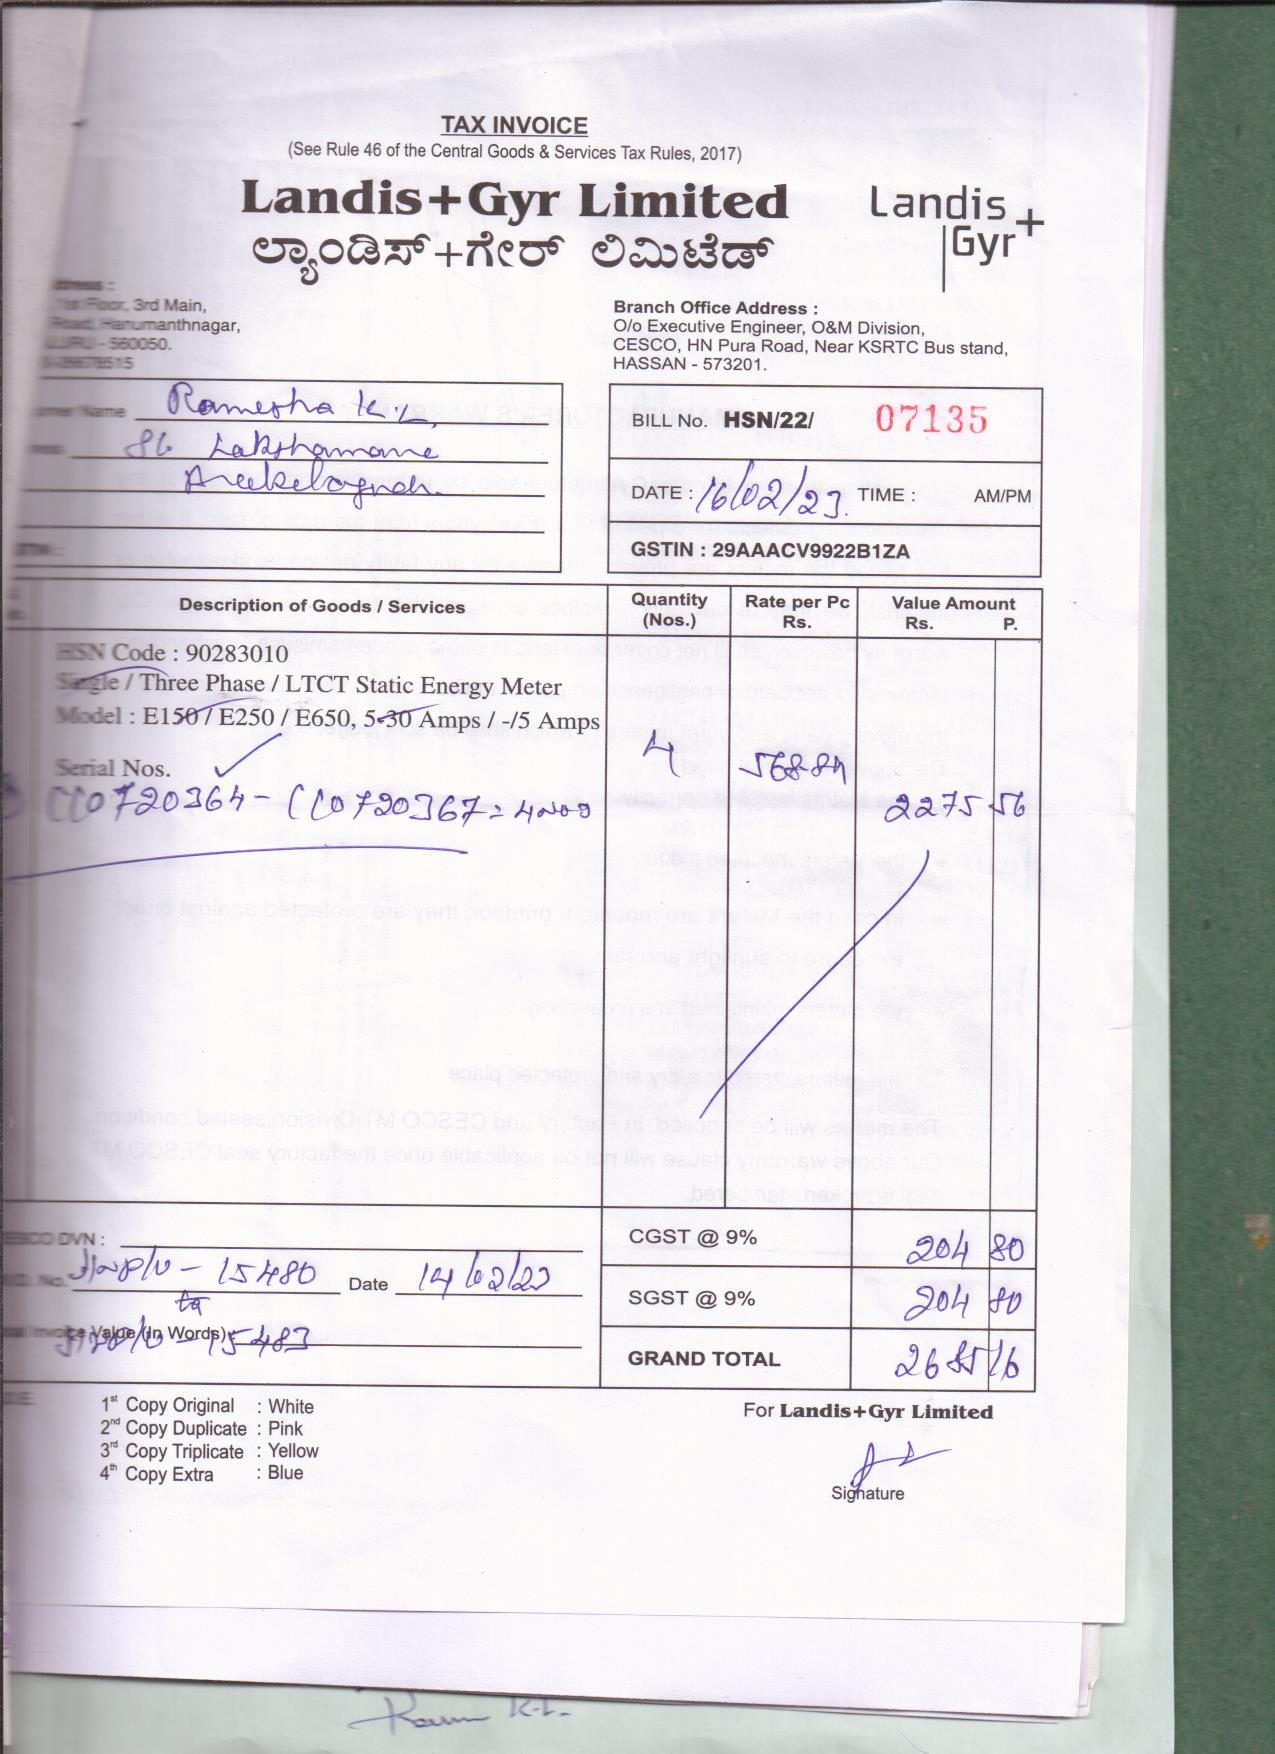 TAX INVOICE
(See Rule 46 of the Central Goods & Services Tax Rules, 2017)
Landis+Gyr Limited
ಲ್ಯಾಂಡಿಸ್+ಗೇರ್ ಲಿಮಿಟೆಡ್
Landis
Gyr+
1st Floor, 3rd Main,
Road, Hanumanthnagar,
- 560050.
Branch Office Address :
O/o Executive Engineer, O&M Division,
CESCO, HN Pura Road, Near KSRTC Bus stand,
HASSAN - 573201.
Name Ramesha K.L,
S/o Lakshamana
BILL No. HSN/22/ 07135
DATE : 16/02/23. TIME : AM/PM
GSTIN : 29AAACV9922B1ZA
Description of Goods / Services
Quantity (Nos.)
Rate per Pc Rs.
Value Amount Rs. P.
HSN Code : 90283010
Single / Three Phase / LTCT Static Energy Meter
Model : E150 / E250 / E650, 5-30 Amps / -/5 Amps
Serial Nos.
4 568-84
CC0720364 - CC0720367 = 4nos
2275 56
CESCO DVN :
CGST @ 9% 204 80
15480 Date 14/02/23
to
SGST @ 9% 204 80
Invoice Value (In Words)
15483
GRAND TOTAL 2685 16
1st Copy Original : White
2nd Copy Duplicate : Pink
3rd Copy Triplicate : Yellow
4th Copy Extra : Blue
For Landis+Gyr Limited
Signature
K.L.